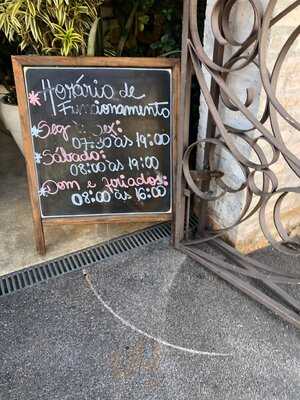 Horário de
Funcionamento
Seg à Sex:
07:30 às 19:00
Sábado:
08:00 às 19:00
Dom e feriados:
08:00 às 16:00